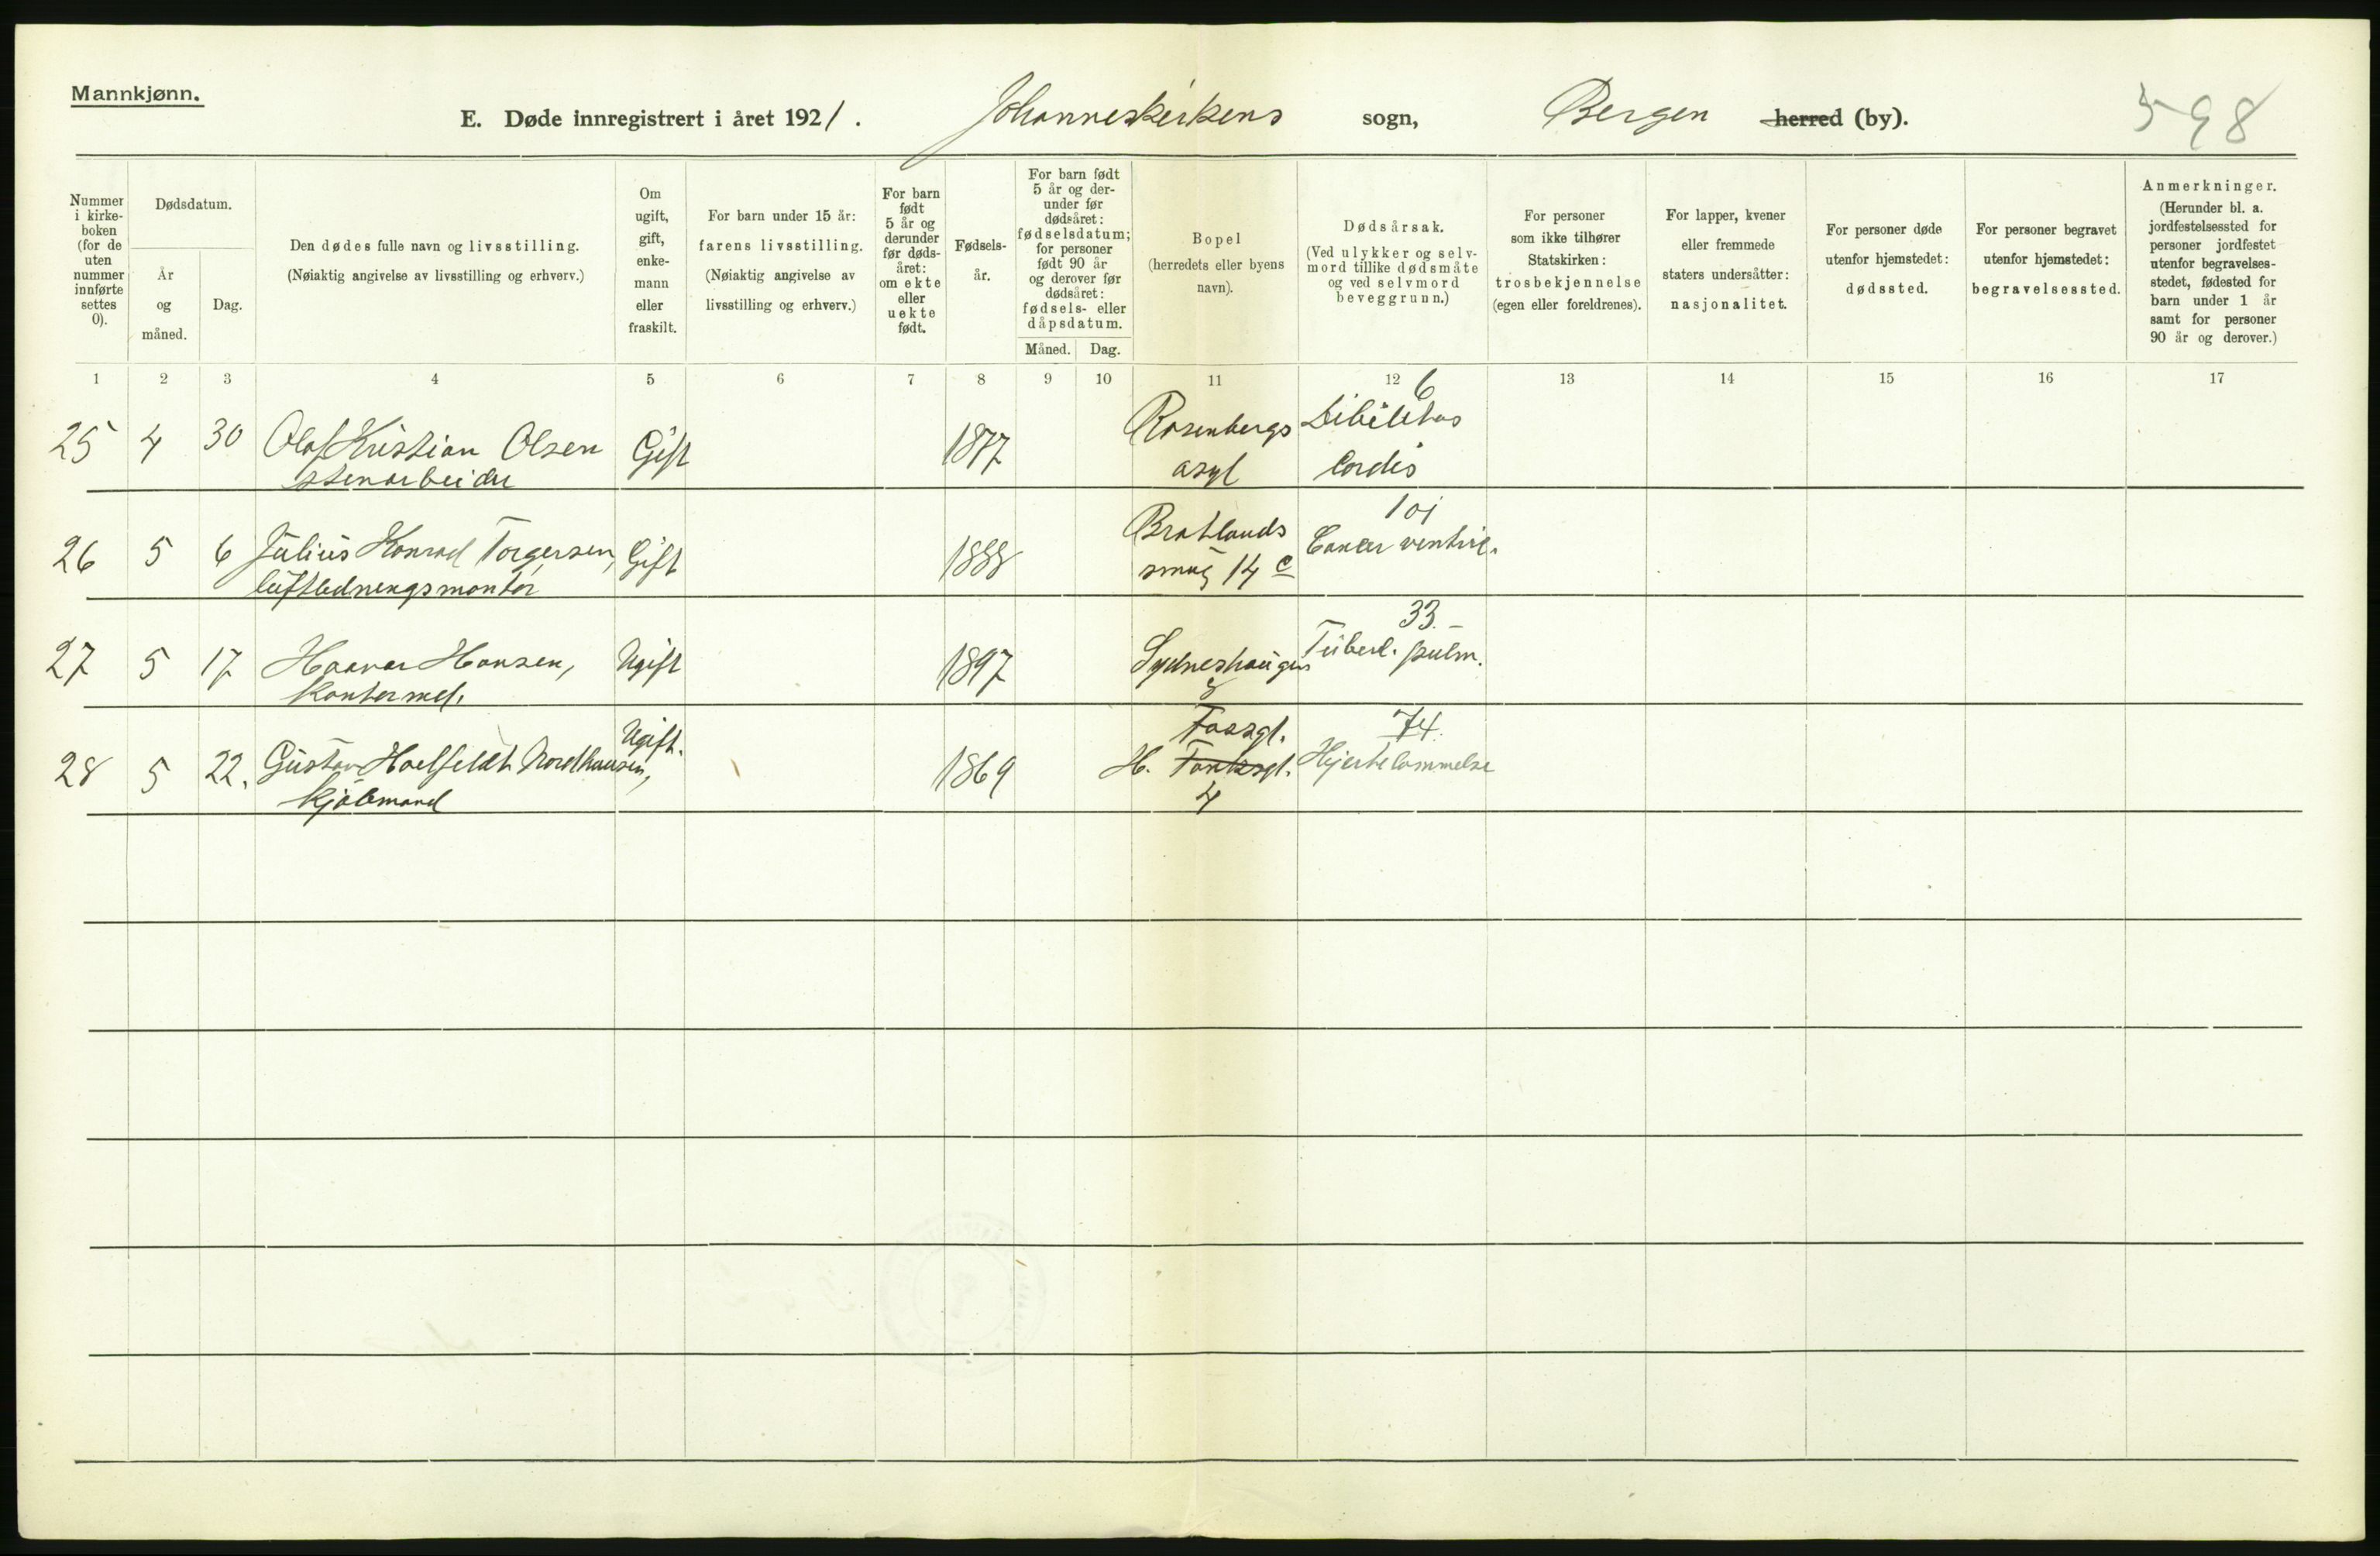 Mannkjønn.
E. Døde innregistrert i året 1921. Johanneskirkens sogn, Bergen herred (by). 598
Nummer i kirke- boken (for de uten nummer innførte settes 0).
Dødsdatum.
År og måned.
Dag.
Den dødes fulle navn og livsstilling.
(Nøiaktig angivelse av livsstilling og erhverv.)
Om ugift, gift, enke- mann eller fraskilt.
For barn under 15 år:
farens livsstilling.
(Nøiaktig angivelse av
livsstilling og erhverv.)
For barn født 5 år og derunder før døds- året: om ekte eller uekte født.
Fødsels- år.
For barn født 5 år og der- under før dødsåret: fødselsdatum; for personer født 90 år og derover før dødsåret: fødsels- eller dåpsdatum.
Måned. Dag.
Bopel
(herredets eller byens
navn).
Dødsårsak.
(Ved ulykker og selv-
mord tillike dødsmåte
og ved selvmord
beveggrunn.)
For personer
som ikke tilhører
Statskirken:
trosbekjennelse
(egen eller foreldrenes).
For lapper, kvener
eller fremmede
staters undersåtter:
nasjonalitet.
For personer døde
utenfor hjemstedet:
dødssted.
For personer begravet
utenfor hjemstedet:
begravelsessted.
Anmerkninger.
(Herunder bl. a.
jordfestelsessted for
personer jordfestet
utenfor begravelses-
stedet, fødested for
barn under 1 år
samt for personer
90 år og derover.)
1 2 3 4 5 6 7 8 9 10 11 12 13 14 15 16 17
6
25 4 30 Olaf Kristian Olsen Gift 1877 Rosenbergs Debilitas
stenarbeider asyl Cordis
101
26 5 6 Julius Konrad Torgersen, Gift 1888 Bratlands Cancer ventric.
luftledningsmontør smug 14 c
33.
27 5 17 Hansen, Ugift 1897 Sydneshaugen Tuberl. pulm.
Kontormed. 8
Fossgt. 74.
28 5 22. Gustav Nordhausen, Ugift. 1869 H. Hjertelammelse
Kjøbmand 4